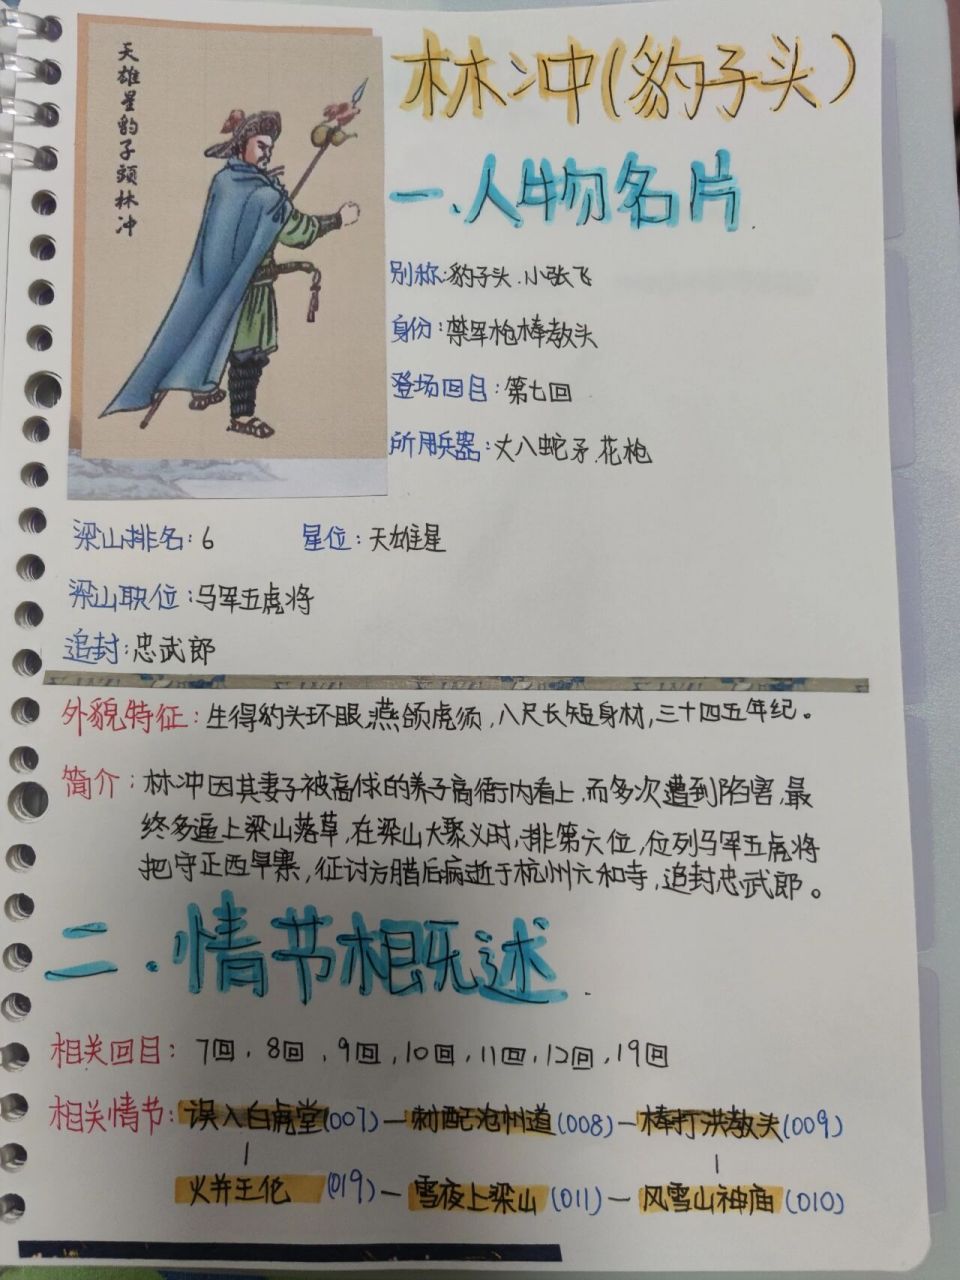 天雄星豹子頭林冲
林冲(豹子头)
一.人物名片
别称:豹子头.小张飞
身份:禁军枪棒教头
登场回目:第七回
所用兵器:丈八蛇矛.花枪
梁山排名:6 星位:天雄星
梁山职位:马军五虎将
追封:忠武郎
外貌特征:生得豹头环眼,燕颌虎须,八尺长短身材,三十四五年纪。
简介:林冲因其妻子被高俅的养子高衙内看上,而多次遭到陷害,最
终多逼上梁山落草,在梁山大聚义时,排第六位,位列马军五虎将
把守正西旱寨,征讨方腊后病逝于杭州六和寺,追封忠武郎。
二.情节概述
相关回目:7回,8回,9回,10回,11回,12回,19回
相关情节:误入白虎堂(007)—刺配沧州道(008)—棒打洪教头(009)
火并王伦(019)—雪夜上梁山(011)—风雪山神庙(010)